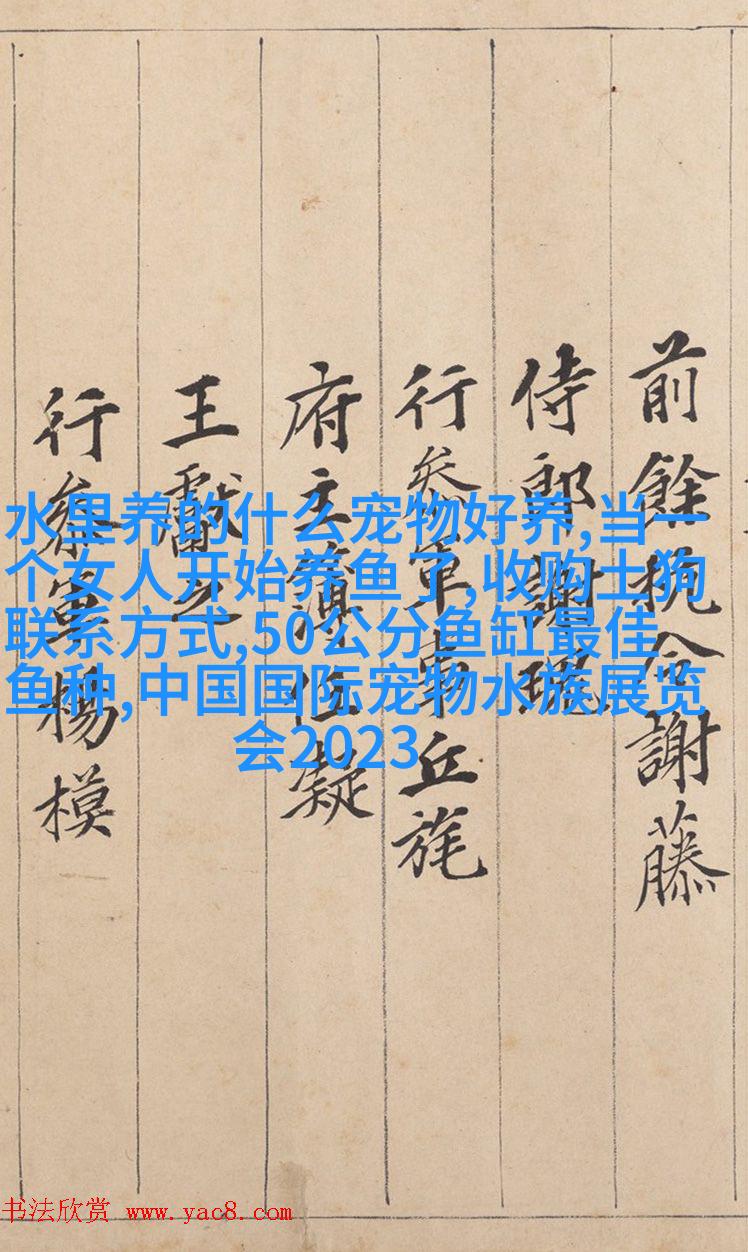 前餘杭令謝藤
侍郎謝瑰
行叅軍事丘旄
府主簿任凝
王獻之
行叅軍楊模
水里养的什么宠物好养,当一
个女人开始养鱼了,收购土狗
联系方式,50公分鱼缸最佳
鱼种,中国国际宠物水族展览
会2023
书法欣赏 www.yac8.com